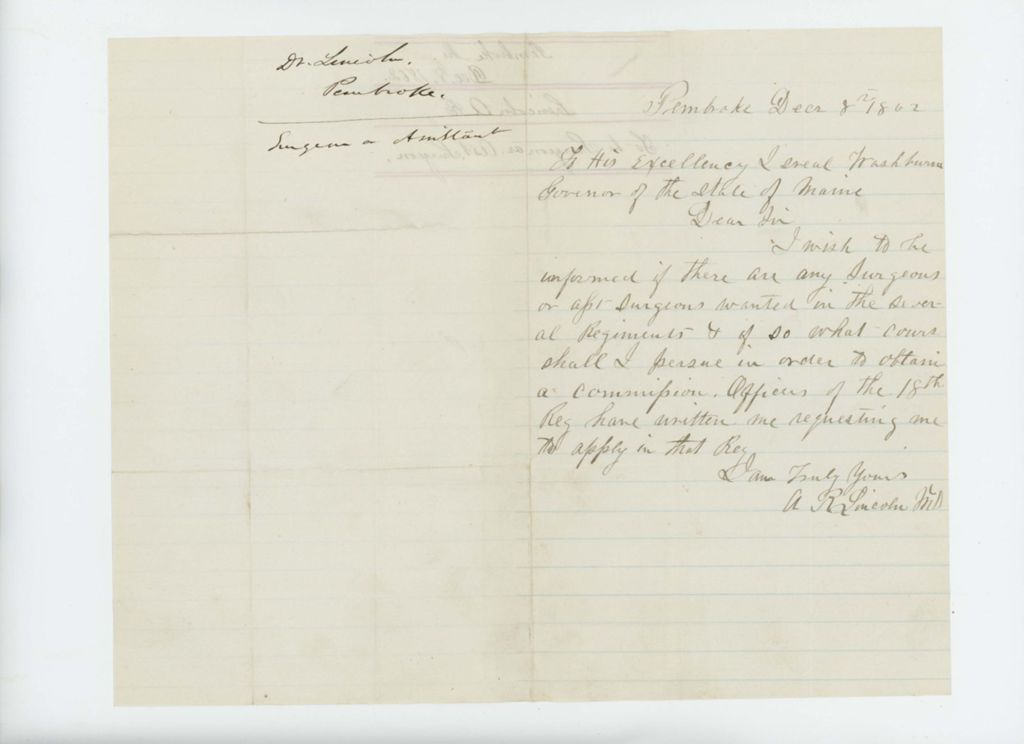 Dr. Lincoln.
Pembroke.
Surgeon or Assistant
Pembroke Decr 8th 1862
To His Excellency Isreal Washburn
Govenor of the State of Maine
Dear Sir
I wish to be
informed if there are any Surgeons
or asst Surgeons wanted in the sever-
al Regiments & if so what cours
shall I persue in order to obtain
a commission. Officers of the 18th
Reg have written me requesting me
to apply in that Reg
I am Truly Yours
A R Lincoln MD